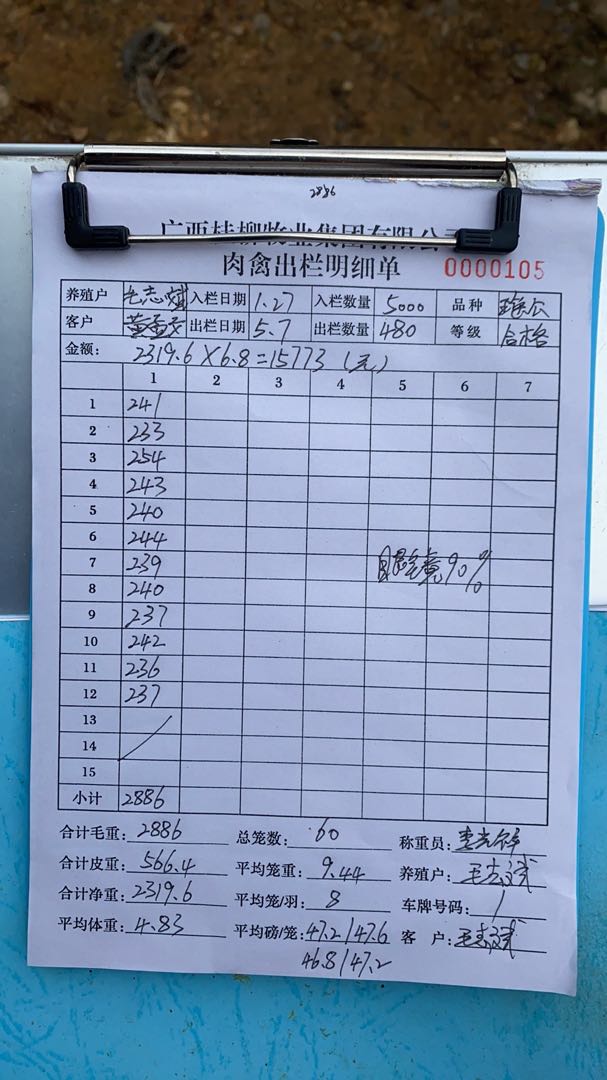 2886
广西桂柳牧业集团有限公司
肉禽出栏明细单 0000105
养殖户 入栏日期 1.27 入栏数量 5000 品种
客户 出栏日期 5.7 出栏数量 480 等级 合格
金额: 2319.6×6.8=15773(元)
1 2 3 4 5 6 7
1 241
2 233
3 254
4 243
5 240
6 244
7 239 眼镜90%
8 240
9 237
10 242
11 236
12 237
13
14
15
小计 2886
合计毛重: 2886 总笼数: 60 称重员:
合计皮重: 566.4 平均笼重: 9.44 养殖户:
合计净重: 2319.6 平均笼/羽: 8 车牌号码: /
平均体重: 4.83 平均磅/笼: 47.2/47.6 客户:
46.8/47.2